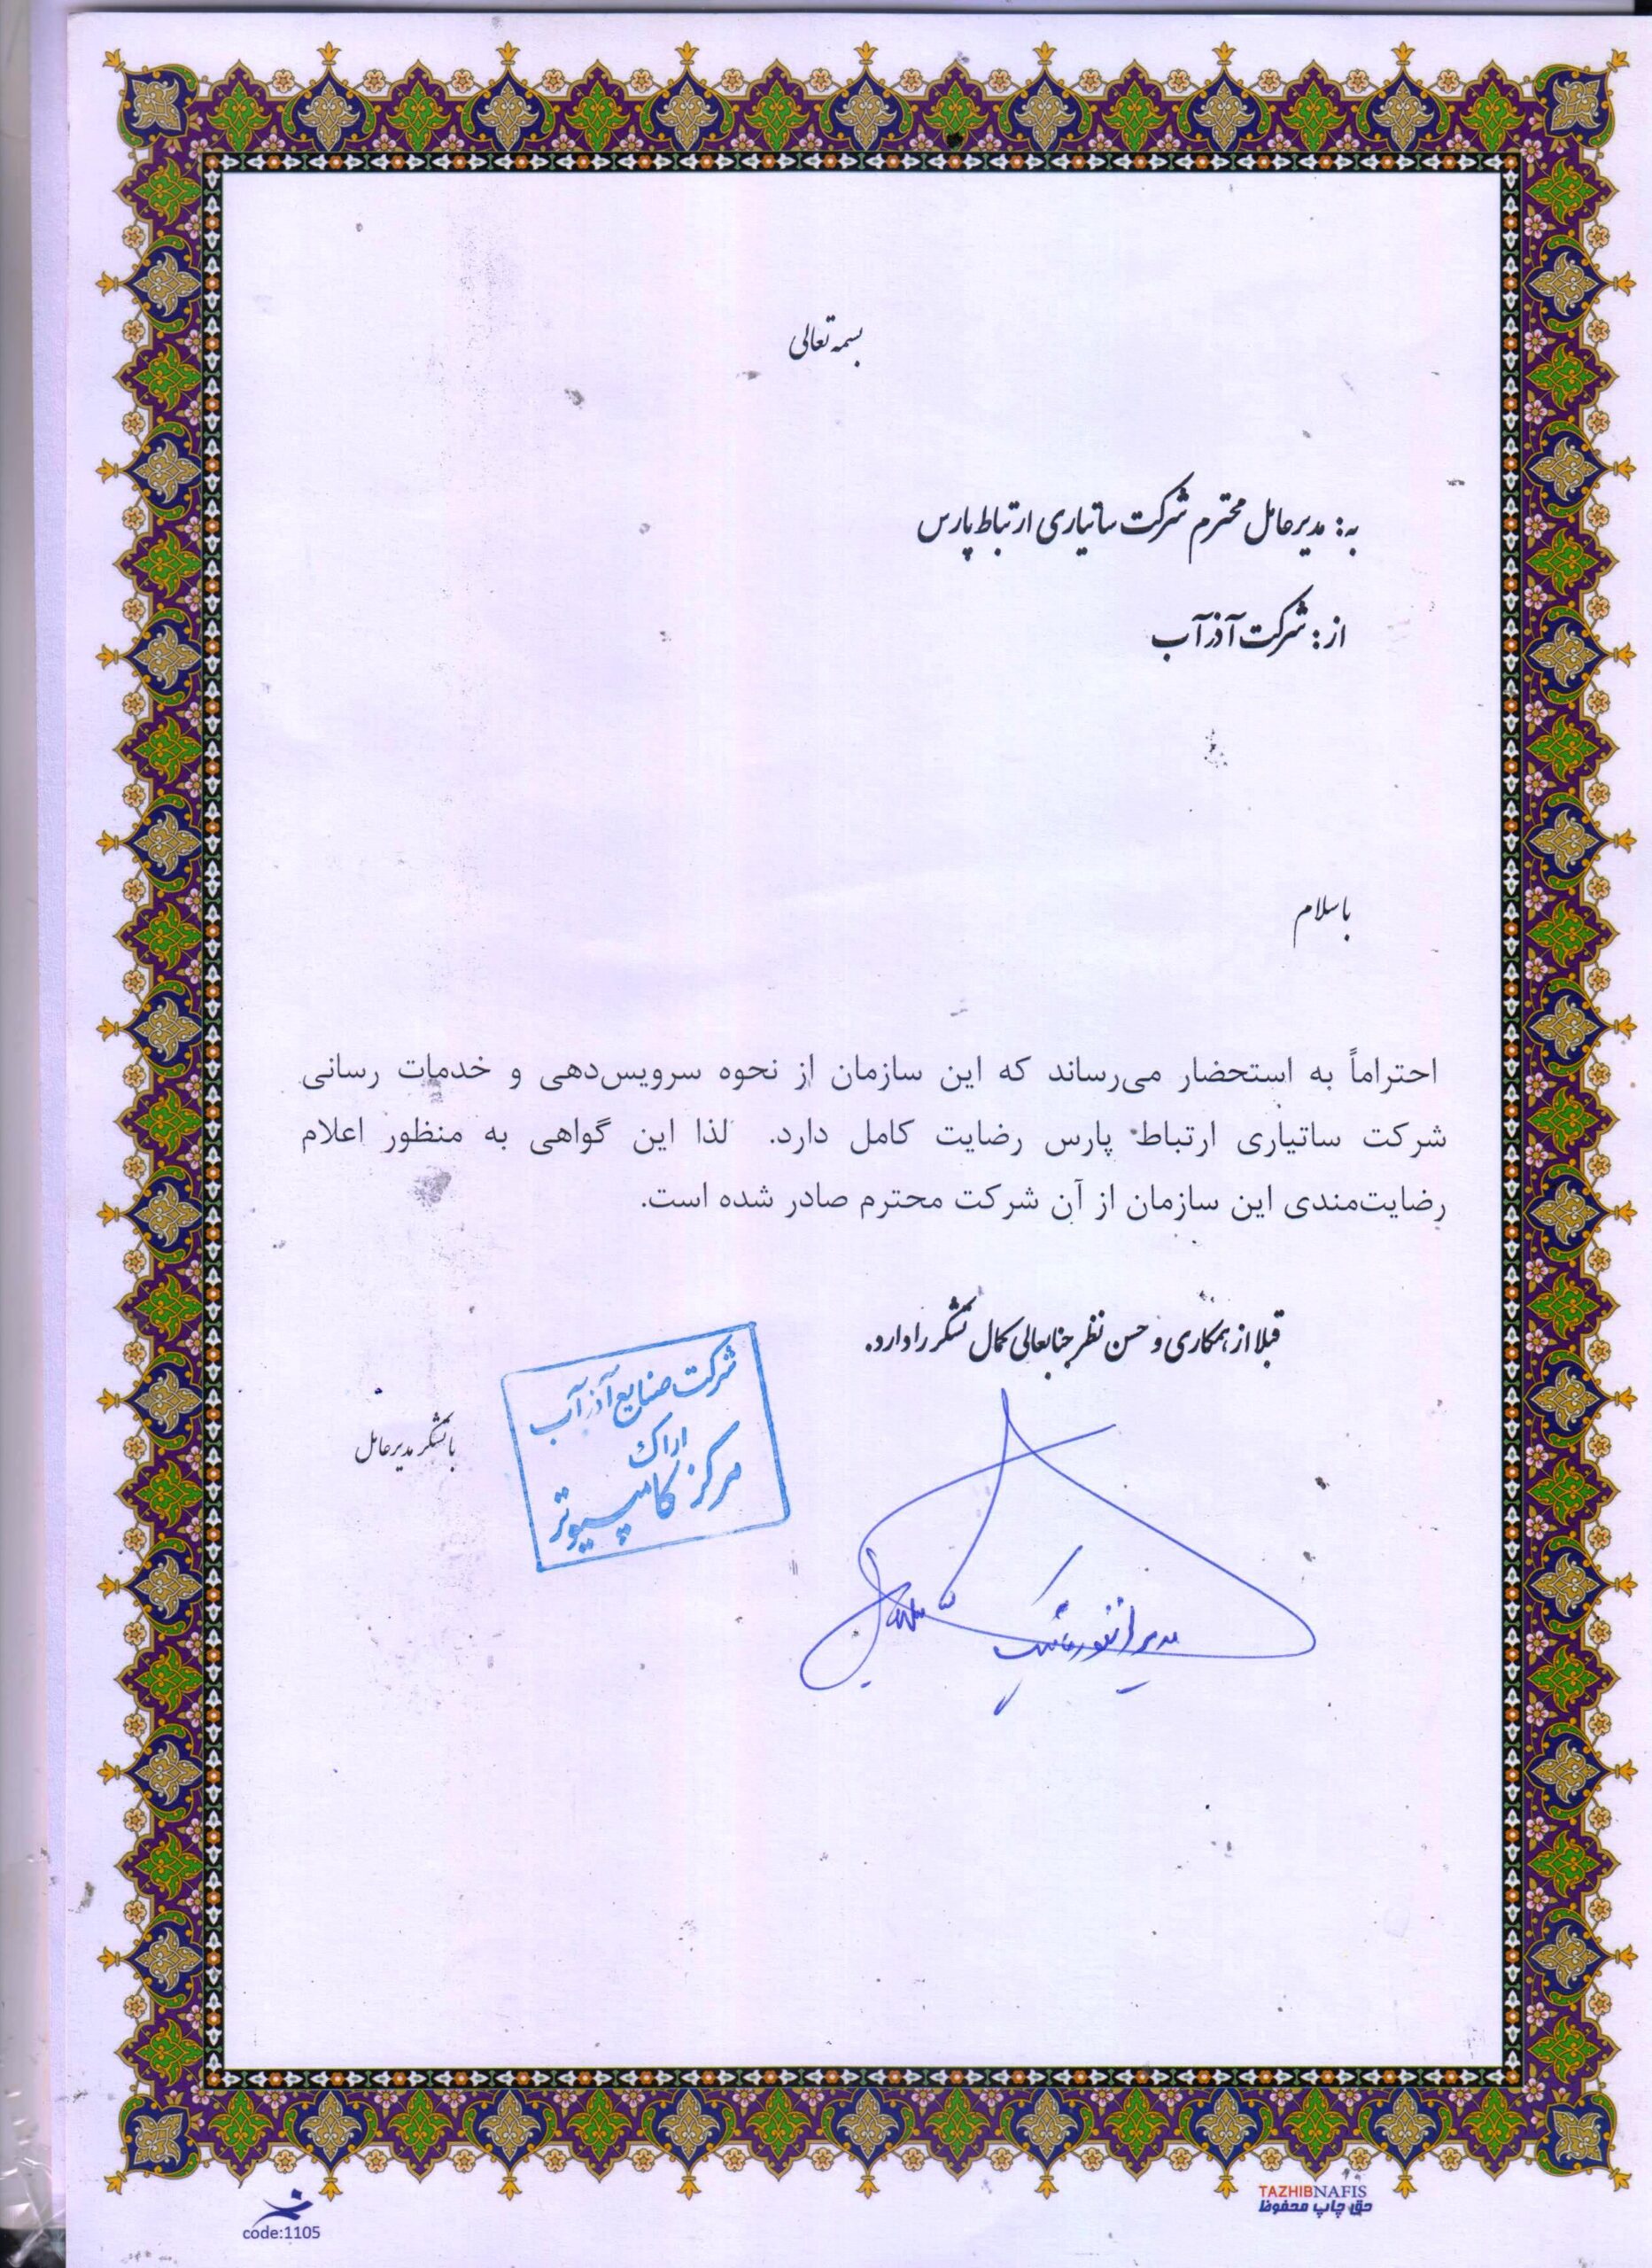 بسمه تعالی
به: مدیرعامل محترم شرکت ساتیاری ارتباط پارس
از: شرکت آذرآب
با سلام
احتراماً به استحضار می‌رساند که این سازمان از نحوه سرویس‌دهی و خدمات رسانی
شرکت ساتیاری ارتباط پارس رضایت کامل دارد. لذا این گواهی به منظور اعلام
رضایت‌مندی این سازمان از آن شرکت محترم صادر شده است.
قبلا از همکاری و حسن نظر جنابعالی کمال تشکر را دارد.
با تشکر مدیرعامل
شرکت صنایع آذرآب
اراک
مرکز کامپیوتر
مدیر انفورماتیک
TAZHIBNAFIS
حق چاپ محفوظ
code:1105